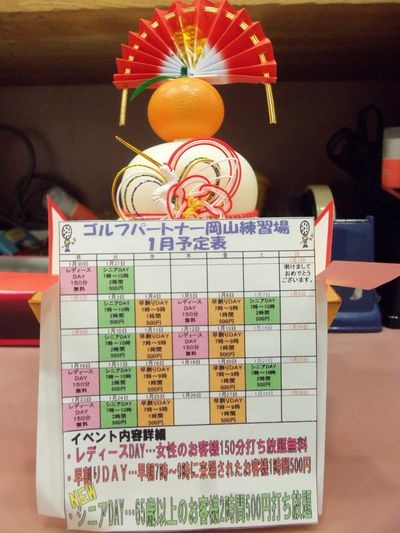 ゴルフパートナー岡山練習場
1月予定表
月 火 水 木 金 土 日
1月30日 1月31日
レディース シニアDAY 明けまして
DAY 7時～10時 おめでとう
150分 2時間 ございます。
無料 500円
1月3日 1月4日 1月5日 1月6日 1月7日
シニアDAY 早割りDAY レディース 早割りDAY シニアDAY
7時～10時 7時～9時 DAY 7時～9時 7時～10時
2時間 1時間 150分 1時間 2時間
500円 500円 無料 500円 500円
1月10日 1月11日 1月12日 1月13日 1月14日
シニアDAY 早割りDAY レディース 早割りDAY
7時～10時 7時～9時 DAY 7時～9時
2時間 1時間 150分 1時間
500円 500円 無料 500円
1月16日 1月17日 1月18日 1月19日 1月20日 1月21日 1月22日
レディース シニアDAY 早割りDAY 早割りDAY
DAY 7時～10時 7時～9時 7時～9時
150分 2時間 1時間 1時間
無料 500円 500円 500円
1月23日 1月24日 1月25日 1月26日 1月27日 1月28日 1月29日
レディース シニアDAY 早割りDAY 早割りDAY
DAY 7時～10時 7時～9時 7時～9時
150分 2時間 1時間 1時間
無料 500円 500円 500円
イベント内容詳細
・レディースDAY…女性のお客様150分打ち放題無料
・早割りDAY…早朝7時～9時に来場されたお客様1時間500円
NEW
・シニアDAY…65歳以上のお客様2時間500円打ち放題